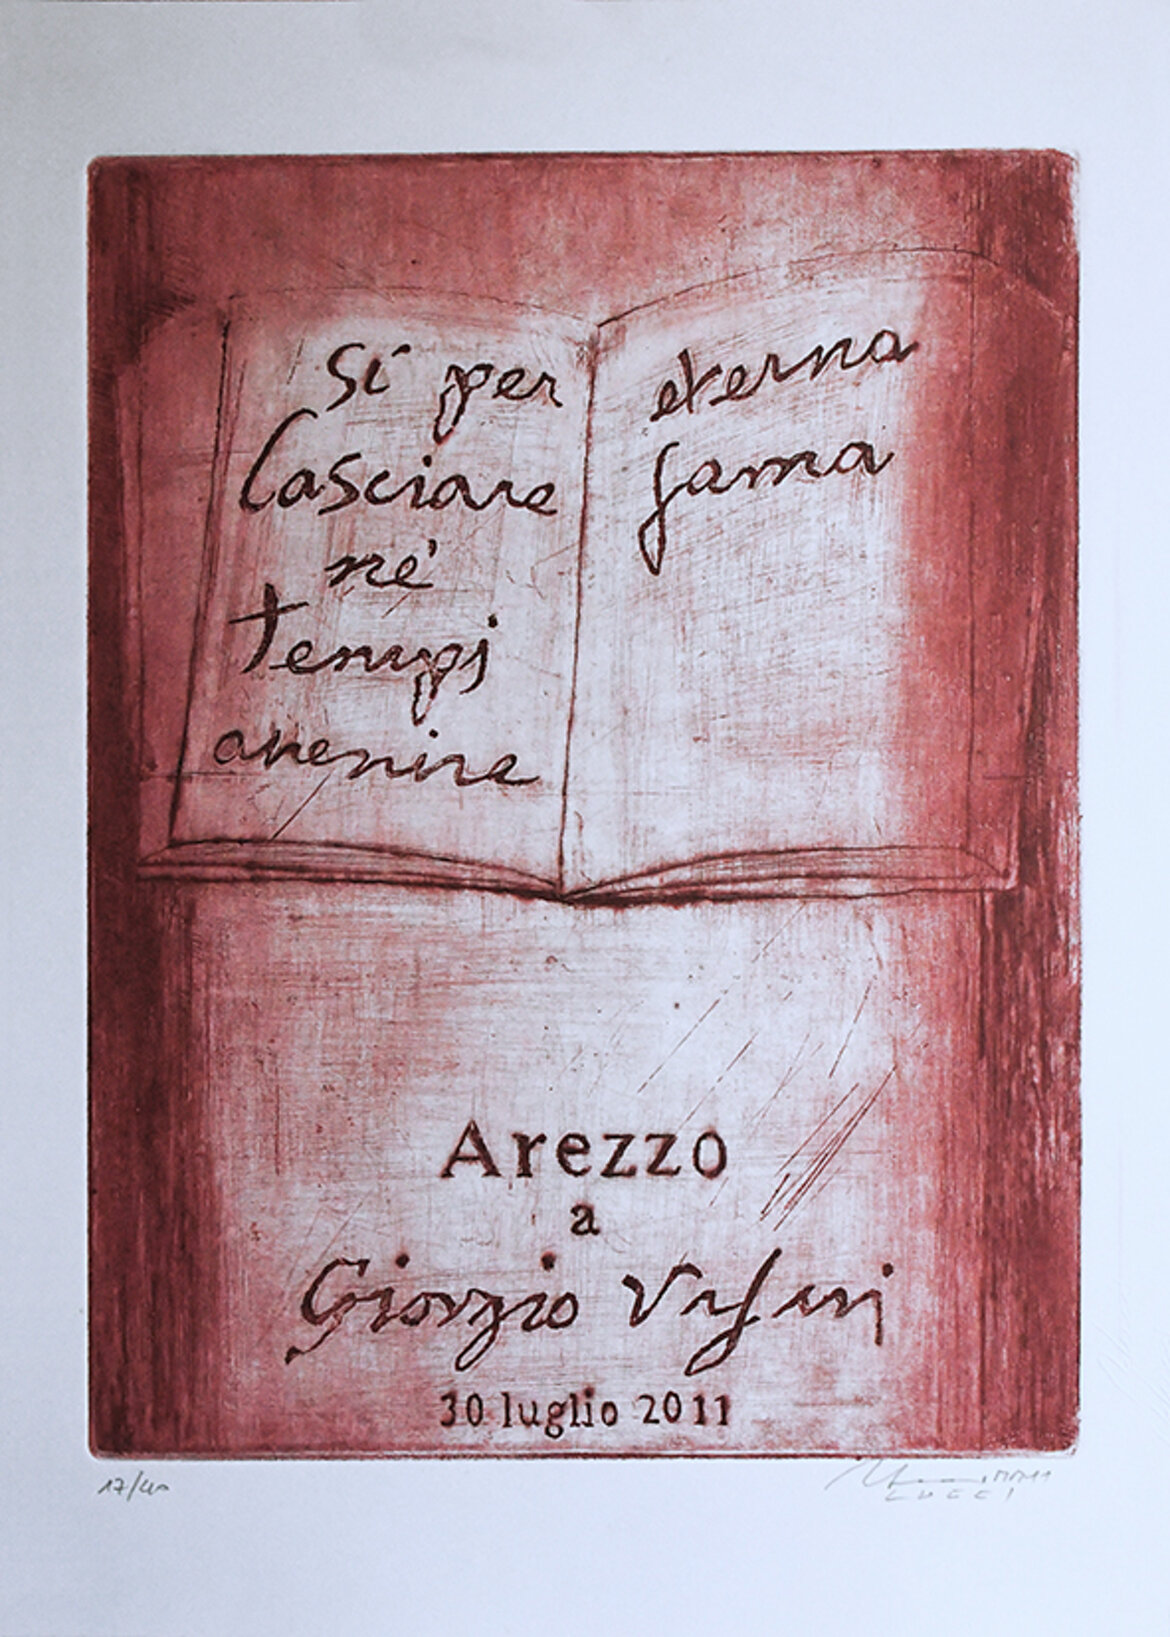 Sí per
lasciare
né
tempi
avenire
eterna
fama
Arezzo
a
Giorgio Vasari
30 luglio 2011
17/40
LUCCI